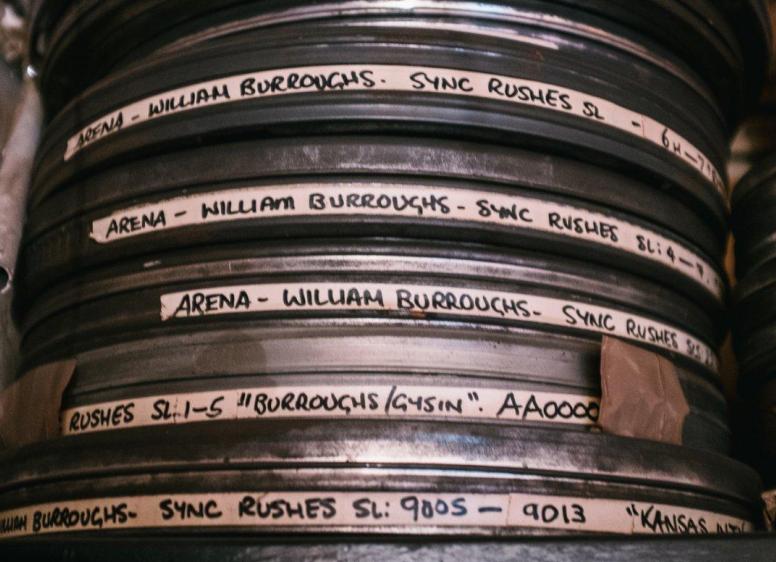 ARENA - WILLIAM BURROUGHS. SYNC RUSHES SL -
ARENA - WILLIAM BURROUGHS - SYNC RUSHES SL: 4 -
ARENA - WILLIAM BURROUGHS - SYNC RUSHES
RUSHES SL.1-5 "BURROUGHS/GYSIN". AA0000
BURROUGHS- SYNC RUSHES SL: 9005 - 9013 "KANSAS